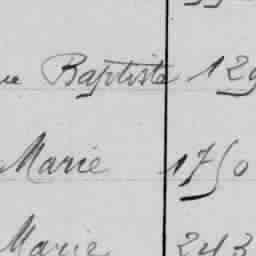 Baptiste 129
Marie 1750
Marie 243